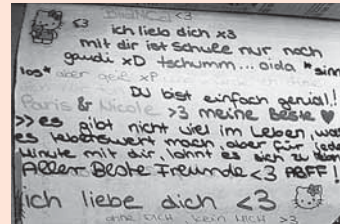 <3
ich lieb dich x3
mit dir ist schule nur noch
gaudi xD tschumm... oida *sinn
los* aber geil xP
DU bist einfach genial!
Paris & Nicole >3 meine Beste ♥
>> es gibt nicht viel im Leben, was
es lebenswert mach, aber für jede
Minute mit dir lohnt es sich zu
Aller Beste Freunde <3 ABFF!
ich liebe dich <3
ohne DICH, kein MICH >3